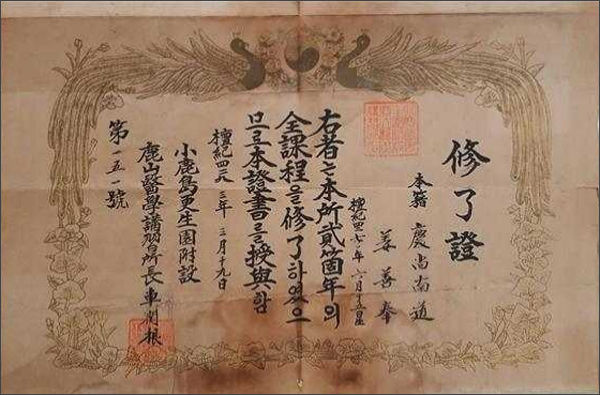 修了證
本籍 慶尚南道
姜善奉
檀紀 年 六月十五日生
右者는本所貳箇年의
全課程을修了하였으
므로本證書를授與함
檀紀 三年 三月十九日
小鹿島更生園附設
鹿山醫學講習所長 車潤根
第一五一號